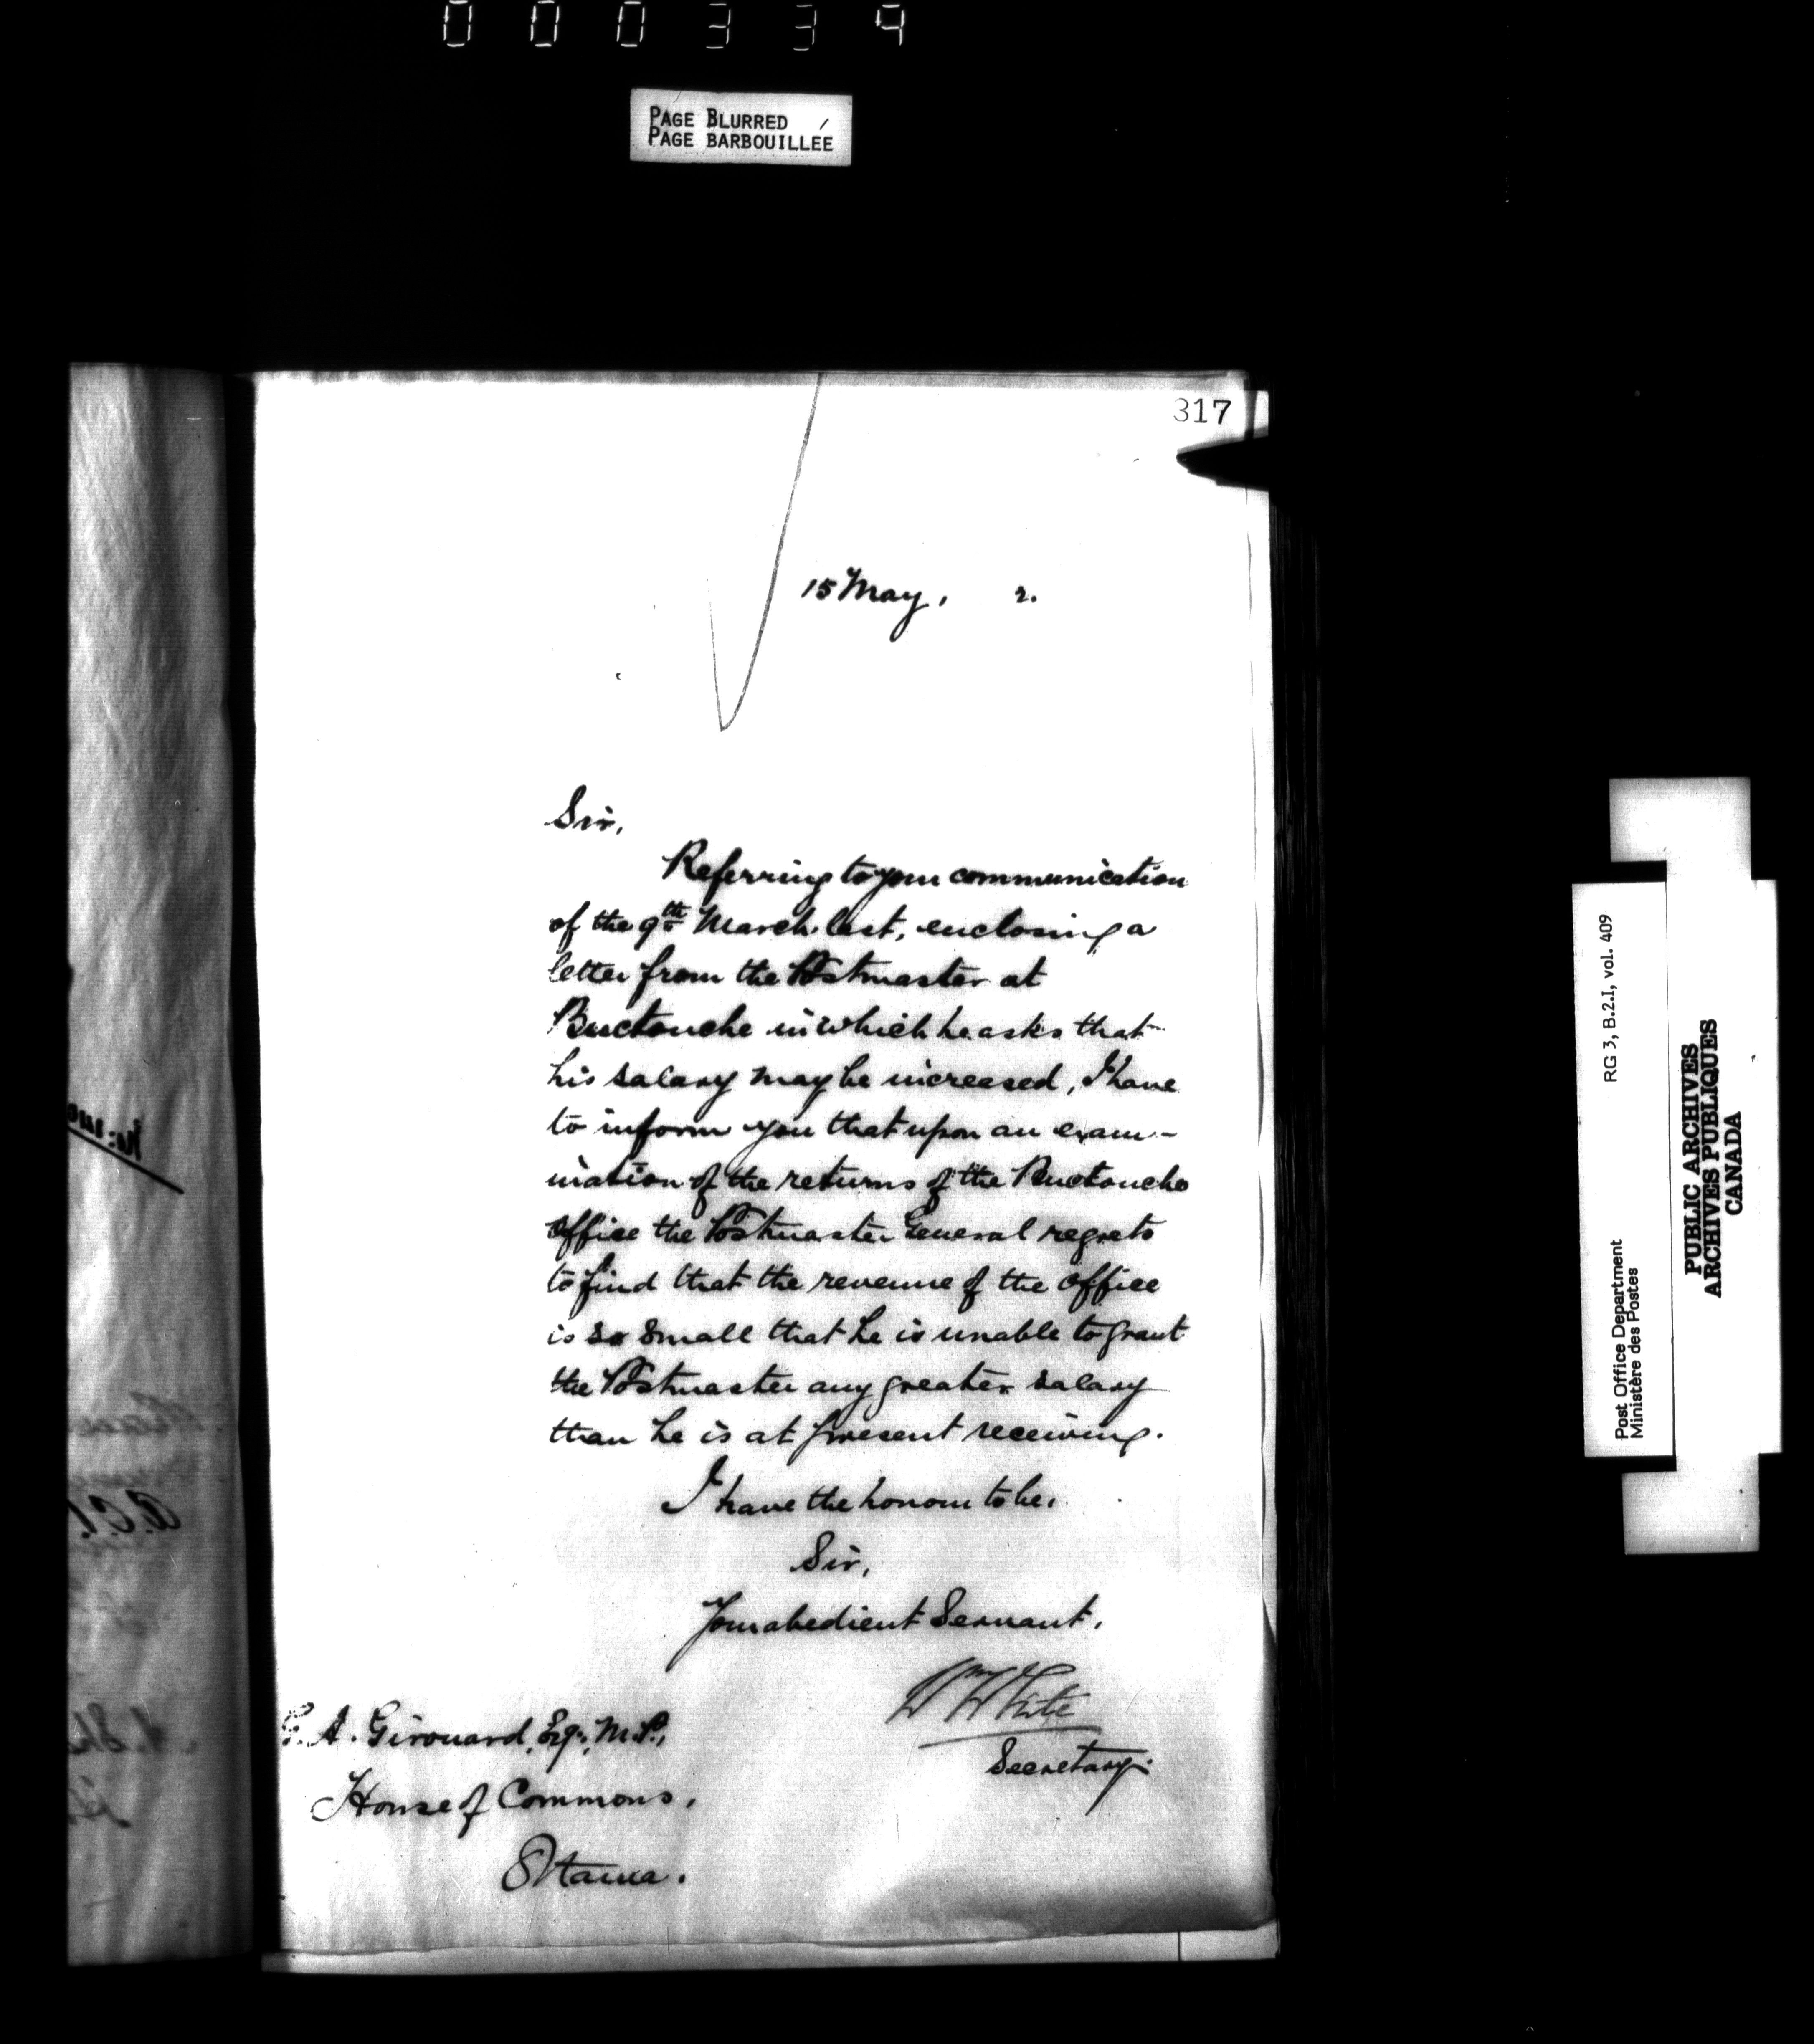 000334
PAGE BLURRED
PAGE BARBOUILLÉE
317
15 May, 2.
Sir,
Referring to your communication
of the 9th March last, enclosing a
letter from the Postmaster at
Buctouche in which he asks that
his salary may be increased, I have
to inform you that upon an exam-
ination of the returns of the Buctouche
office the Postmaster General regrets
to find that the revenue of the office
is so small that he is unable to grant
the Postmaster any greater salary
than he is at present receiving.
I have the honour to be,
Sir,
Your obedient Servant,
Wm White
Secretary.
G. A. Girouard, Esq., M.P.,
House of Commons,
Ottawa.
RG 3, B.2.I, vol. 409
Post Office Department
Ministère des Postes
PUBLIC ARCHIVES
ARCHIVES PUBLIQUES
CANADA